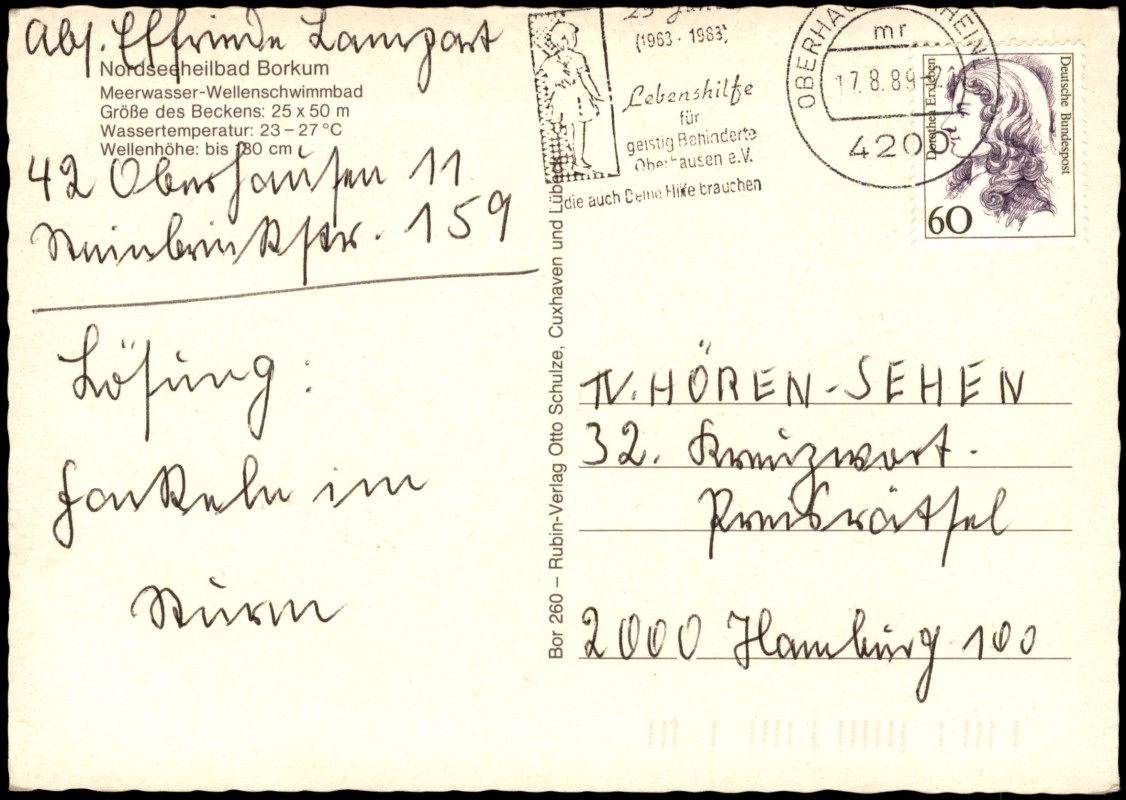 Abs. Elfriede Lampart
Nordseeheilbad Borkum
Meerwasser-Wellenschwimmbad
Größe des Beckens: 25 x 50 m
Wassertemperatur: 23 – 27 °C
Wellenhöhe: bis 80 cm
42 Oberhausen 11
Steinbrinkstr. 159
Lösung:
Fackeln im
Sturm
(1963 - 1983)
Lebenshilfe
für
geistig Behinderte
Oberhausen e.V.
die auch Deine Hilfe brauchen
OBERHAUSEN RHEINL
mr
17.8.89
4200
Dorothea Erxleben
Deutsche Bundespost
60
Bor 260 – Rubin-Verlag Otto Schulze, Cuxhaven und Lübeck
TV. HÖREN-SEHEN
32. Kreuzwort.
Preisrätsel
2000 Hamburg 100